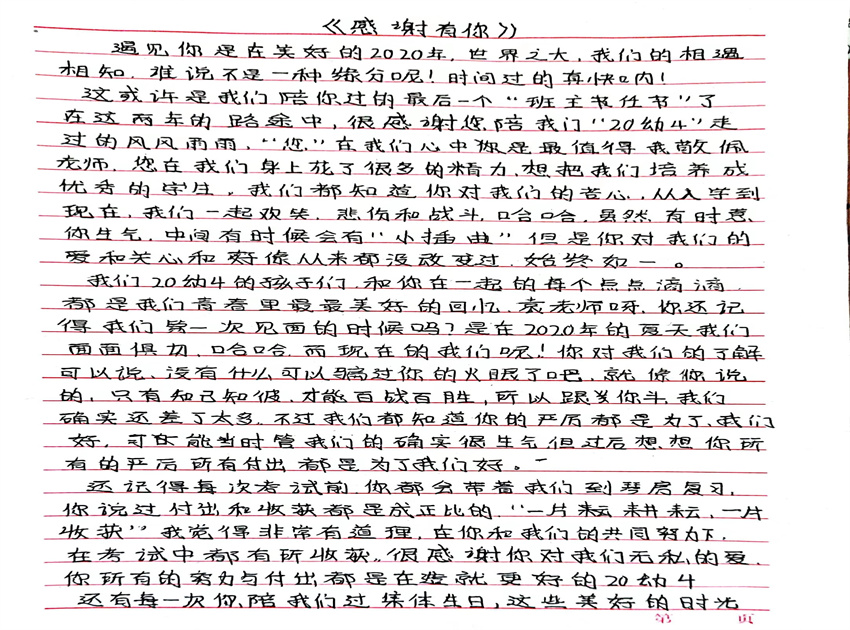 《感谢有你》
遇见你是在美好的2020年,世界之大,我们的相遇
相知,难说不是一种缘分呢!时间过的真快呐!
这或许是我们陪你过的最后一个“班主书任节”了
在这两年的路途中,很感谢您陪我们“20幼4”走
过的风风雨雨,“您”在我们心中你是最值得我敬佩
老师.您在我们身上花了很多的精力,想把我们培养成
优秀的学生,我们都知道你对我们的苦心,从入学到
现在,我们一起欢笑.悲伤和战斗,哈哈,虽然有时惹
你生气,中间有时候会有“小插曲”但是你对我们的
爱和关心和好像从来都没改变过,始终如一。
我们20幼4的孩子们,和你在一起的每个点点滴滴
都是我们青春里最最美好的回忆,袁老师呀,你还记
得我们第一次见面的时候吗?是在2020年的夏天我们
面面俱切,哈哈,而现在的我们呢!你对我们的了解
可以说,没有什么可以骗过你的火眼了吧,就像你说
的,只有知己知彼,才能百战百胜,所以跟当你斗,我们
确实还差了太多,不过我们都知道你的严厉都是为了我们
好,可能当时管我们的确实很生气但过后想想你所
有的严厉所有付出都是为了我们好。
还记得每次考试前,你都会带着我们到琴房复习,
你说过付出和收获都是成正比的,“一片耘耕耘,一片
收获”我觉得非常有道理,在你和我们的共同努力下,
在考试中都有所收获,很感谢你对我们无私的爱.
你所有的努力与付出都是在造就更好的20幼4
还有每一次你陪我们过集体生日,这些美好的时光
第 页